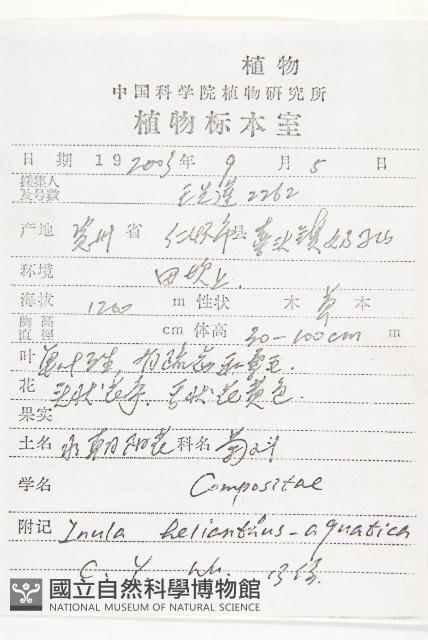 植物
中国科学院植物研究所
植物标本室
日期 19 2003年 9月 5日
採集人
及号數 2262
产地 贵州省 仁怀市县
环境 田坎上.
海拔 1200 m 性状 木 草 本
胸高
直徑 cm 体高 30-100cm m
叶
花 头状花序. 舌状花黄色.
果实
土名 水朝阳花 科名 菊科
学名 Compositae
附记 Inula helianthus-aquatica
C. Y. Wu.
國立自然科學博物館
NATIONAL MUSEUM OF NATURAL SCIENCE